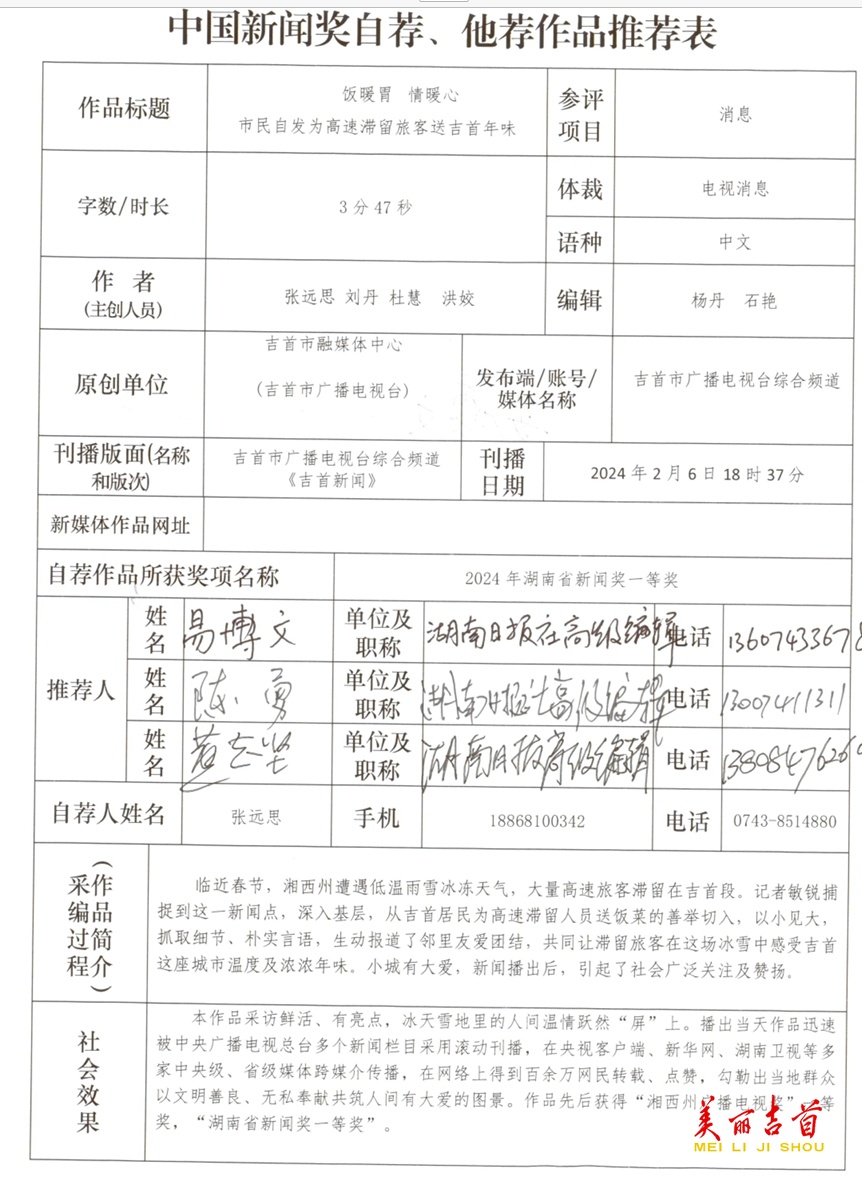 中国新闻奖自荐、他荐作品推荐表
作品标题
饭暖胃 情暖心
市民自发为高速滞留旅客送吉首年味
参评
项目
消息
字数/时长
3分47秒
体裁
电视消息
语种
中文
作 者
(主创人员)
张远思 刘丹 杜慧 洪姣
编辑
杨丹 石艳
原创单位
吉首市融媒体中心
(吉首市广播电视台)
发布端/账号/
媒体名称
吉首市广播电视台综合频道
刊播版面(名称
和版次)
吉首市广播电视台综合频道
《吉首新闻》
刊播
日期
2024年2月6日18时37分
新媒体作品网址
自荐作品所获奖项名称
2024年湖南省新闻奖一等奖
推荐人
姓
名
易博文
单位及
职称
湖南日报社高级编辑
电话
13607433678
姓
名
陈勇
单位及
职称
湖南日报社高级编辑
电话
13007411311
姓
名
单位及
职称
湖南日报高级编辑
电话
1380847626
自荐人姓名
张远思
手机
18868100342
电话
0743-8514880
采编过程
(作品简介)
临近春节，湘西州遭遇低温雨雪冰冻天气，大量高速旅客滞留在吉首段。记者敏锐捕
捉到这一新闻点，深入基层，从吉首居民为高速滞留人员送饭菜的善举切入，以小见大，
抓取细节、朴实言语，生动报道了邻里友爱团结，共同让滞留旅客在这场冰雪中感受吉首
这座城市温度及浓浓年味。小城有大爱，新闻播出后，引起了社会广泛关注及赞扬。
社会效果
本作品采访鲜活、有亮点，冰天雪地里的人间温情跃然“屏”上。播出当天作品迅速
被中央广播电视总台多个新闻栏目采用滚动刊播，在央视客户端、新华网、湖南卫视等多
家中央级、省级媒体跨媒介传播，在网络上得到百余万网民转载、点赞，勾勒出当地群众
以文明善良、无私奉献共筑人间有大爱的图景。作品先后获得“湘西州广播电视奖”一等
奖，“湖南省新闻奖一等奖”。
美丽吉首
MEI LI JI SHOU